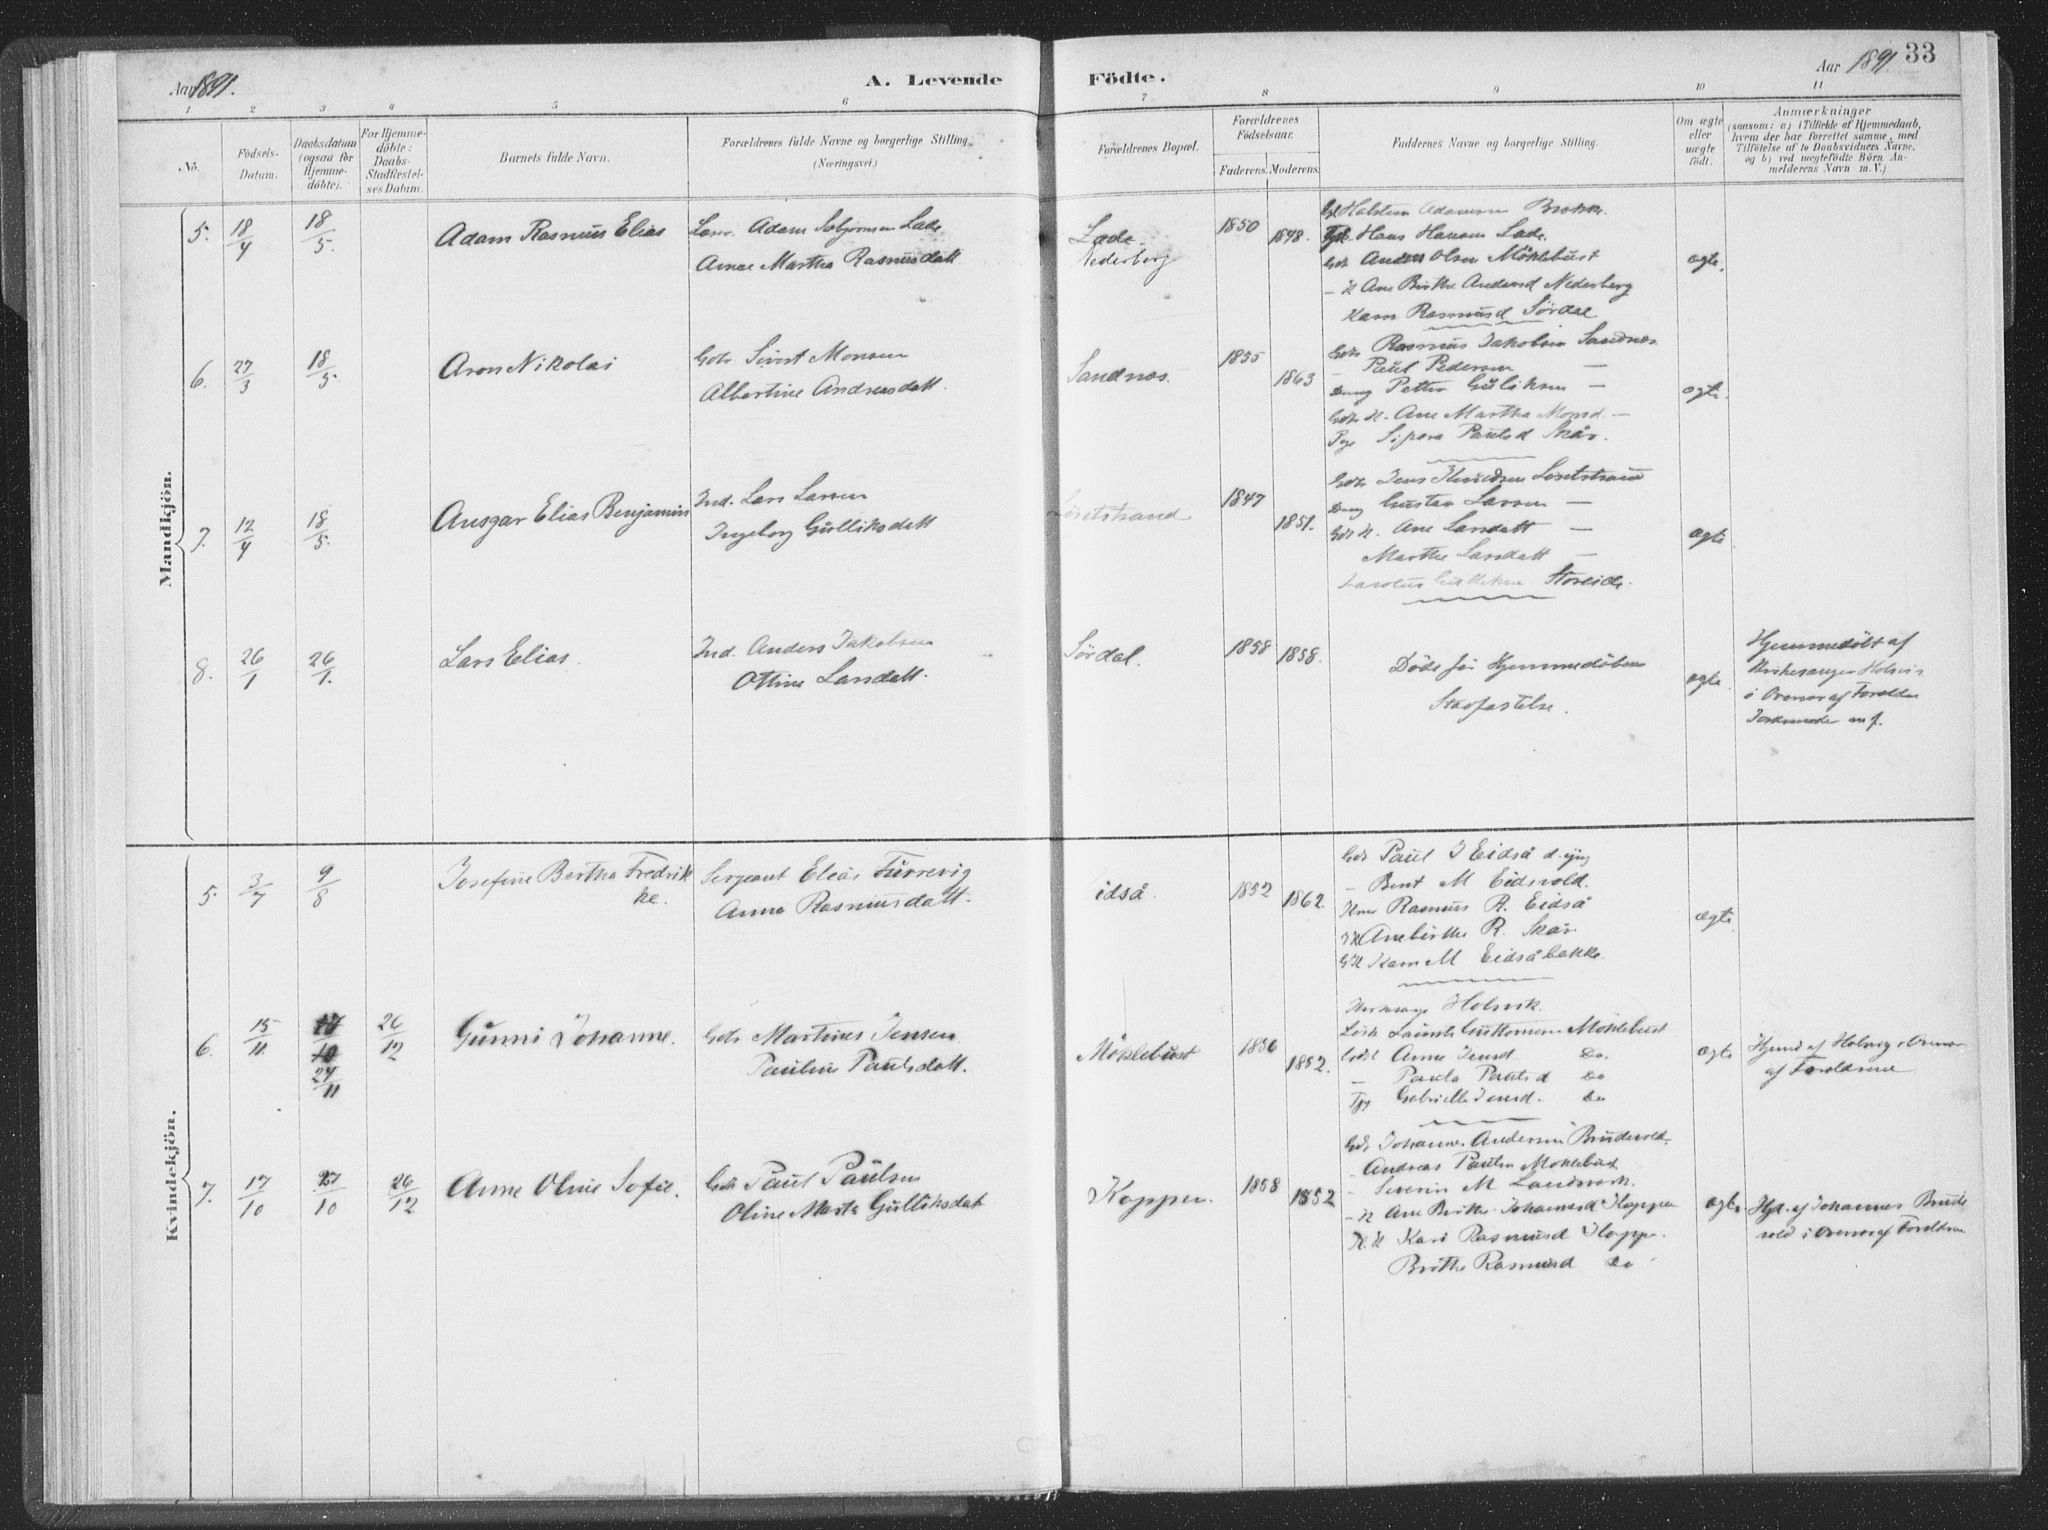 Aar 1891.
A. Levende
Födte.
Aar 1891. 33
1 2 3 4 5 6 7 8 9 10 11
No.
Födsels-
Datum.
Daabsdatum
(ogsaa for
Hjemme-
döbte).
For Hjemme-
döbte:
Daabs-
Stadfæstel-
ses Datum.
Barnets fulde Navn.
Forældrenes fulde Navne og borgerlige Stilling
(Næringsvei)
Forældrenes Bopæl.
Forældrenes
Födselsaar.
Faderens. Moderens.
Faddernes Navne og borgerlige Stilling.
Om ægte
eller
uægte
født.
Anmærkninger
(saasom: a) i Tilfælde af Hjemmedaab,
hvem der har forrettet samme, med
Tilföielse af to Daabsvidners Navne,
og b) ved uægtefödte Börn An-
melderens Navn m. V.)
Mandkjön.
5. 18/4 18/5. Adam Rasmus Elias
Adam Lade
Anne Martha Rasmusdatt
Lade
Nederberg
1850 1848.
Hans Hansen Lade.
Gdr Anders Olsen Möklebust
- K Ane Birthe Andersd Nederberg
Karn Rasmusd Sördal
ægte.
6. 27/3 18/5. Aron Nikolai
Gdr Sivert Monsen
Albertine Andreasdatt.
Sandnæs.
1855 1863
Gdr Rasmus Jakobsen Sandnæs
- Paul Pedersen -
Petter Guliksen -
Gdr K. Ane Martha Monsd -
Pge Sipora Paulsd Skår.
ægte.
7. 12/4 18/5. Ansgar Elias Benjamin
Ind. Lars Larsen
Ingeborg Gulliksdatt
Løsetstrand
1847 1851.
Gdr Jens Knudsen Løsetstrand
Gustav Larsen -
Gdr K. Ane Larsdatt -
Marthe Larsdatt -
Storeide.
ægte
8. 26/1 26/1. Lars Elias.
Ind. Anders Jakobsen
Ottine Larsdatt.
Sördal.
1858 1858.
Döde før Hjemmedöbens
Stadfæstelse.
ægte.
Hjemmedöbt af
Kirkesanger Holsvik
i Overvær af Forældre
Jordemoder m f.
Kvindekjön.
5. 3/7 9/8 Josefine Bertha Fredrik
ke.
Sergeant Elias Furrevig
Anna Rasmusdatt.
idså.
1852 1862.
Gdr Paul J Eidså
- Bent M Eidsvold.
Rasmus R. Eidså
Anebirthe R. Skår
Karn M Eidså bakke.
ægte
6. 15/11. 24/11 26/12 Gunni Johanne.
Gdr Martines Jensen
Pauline Paulsdatt.
Möklebust
1856 1852.
Holsvik.
Möklebust
Anne Jensd. Do.
- Paula Paulsd Do
Gabrielle Jensd. Do
ægte
Hjemd af Holsvig i Overvær
af Forældrene
7. 17/10 27/10 26/12 Anne Oline Sofie.
Gdr Paul Paulsen
Oline Marta Gulliksdatt
Koppen.
1858 1852
Gdr Johannes Andersen Brudevold.
- Andreas Paulsen Möklebust
- Severin M Landmark.
- K Ane Birthe Johannesd Koppen
K. K Kari Rasmusd Koppe.
Brithe Rasmusd Do
ægte.
Hjd. af Johannes Brude
vold i Overvær af Forældrene